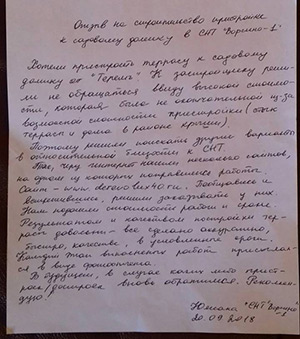 Отзыв на строительство пристройки
к садовому домику в СНТ "Ворсино-1"
Хотели пристроить террасу к садовому
домику от "Терем". К застройщику реши-
ли не обращаться ввиду высокой стоимо-
сти, которая была не окончательной из-за
возможной сложности пристройки (стык
террасы и дома в районе крыши).
Поэтому решили поискать другие варианты
в относительной близости к СНТ.
Так, чрез интернет нашли несколько сайтов,
на одном из которых понравились работы.
Сайт - www.derevo.lux40.ru. Пообщавшись,
встретившись, решили заказывать у них.
Нам озвучили стоимость работ и сроки.
Результатом и качеством постройки тер-
расы довольны - все сделано аккуратно,
быстро, качественно, в условленные сроки.
Каждый этап выполненных работ присылал-
ся в виде фотоотчета.
В будущем, в случае каких-либо прист-
роек/достроек вновь обратимся. Рекомен-
дую.
"СНТ" Ворсино"
20.09.2018